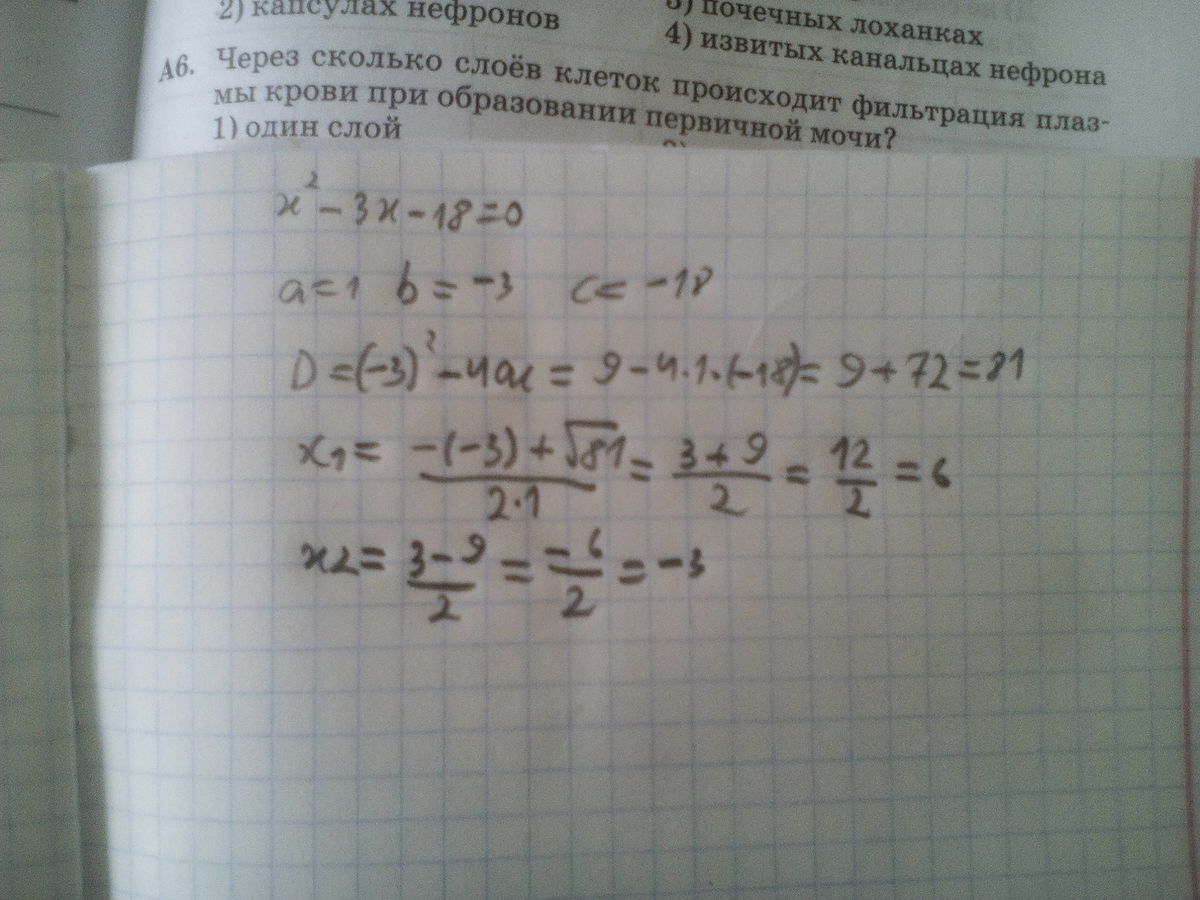 2) капсулах нефронов
3) почечных лоханках
4) извитых канальцах нефрона
А6. Через сколько слоёв клеток происходит фильтрация плаз-
мы крови при образовании первичной мочи?
1) один слой
x² - 3x - 18 = 0
a = 1 b = -3 c = -18
D = (-3)² - 4ac = 9 - 4·1·(-18) = 9 + 72 = 81
x₁ = (-(-3) + √81)/(2·1) = (3 + 9)/2 = 12/2 = 6
x2 = (3 - 9)/2 = (-6)/2 = -3